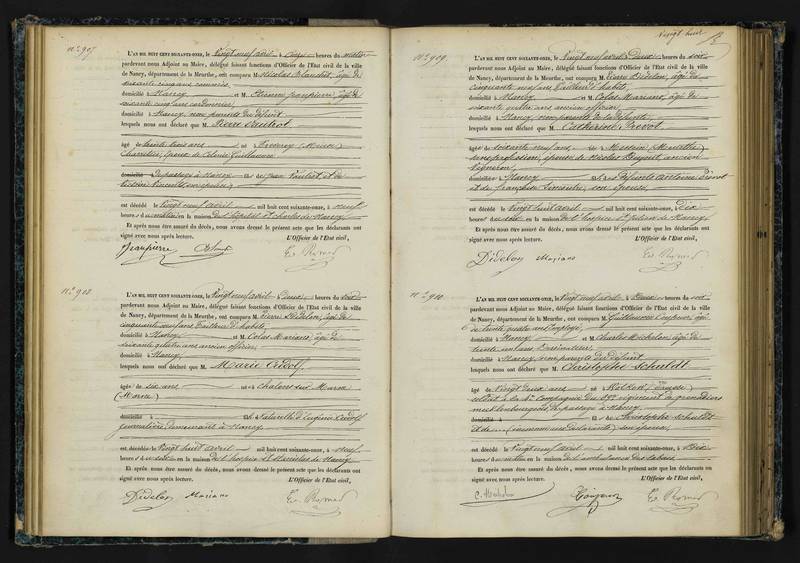 n° 907
L'AN MIL HUIT CENT SOIXANTE-ONZE, le vingt neuf avril à onze heures du matin
pardevant nous Adjoint au Maire, délégué faisant fonctions d'Officier de l'Etat civil de la ville
de Nancy, département de la Meurthe, ont comparu M. Nicolas Blanchet, âgé de
soixante cinq ans
domicilié à Nancy et M. Etienne Jeanpierre, âgé de
soixante cinq ans cordonnier,
domicilié à Nancy, non parents du défunt
lesquels nous ont déclaré que M. Pierre
âgé de trente trois ans né à (Meuse)
Charretier, époux de Célinie Guillaume
domicilié de passage à Nancy fils de Jean et de
Victoire
est décédé le vingt neuf avril mil huit cent soixante-onze, à neuf
heures du matin en la maison de l'hôpital St Charles de Nancy
Et après nous être assuré du décès, nous avons dressé le présent acte que les déclarants ont
signé avec nous après lecture. L'Officier de l'Etat civil,
Jeanpierre
n° 908
L'AN MIL HUIT CENT SOIXANTE-ONZE, le vingt neuf avril à deux heures du soir
pardevant nous Adjoint au Maire, délégué faisant fonctions d'Officier de l'Etat civil de la ville
de Nancy, département de la Meurthe, ont comparu M. Pierre Didelon, âgé de
cinquante neuf ans tailleur d'habits,
domicilié à Nancy et M. Colas Mariano, âgé de
soixante quatre ans ancien officier,
domicilié à Nancy
lesquels nous ont déclaré que M. Marie
âgée de six ans née à Chalons sur Marne
(Marne)
domicilié à fille naturelle d'Eugénie
journalière demeurant à Nancy
est décédée le vingt huit avril mil huit cent soixante-onze, à neuf
heures du soir en la maison de l'hospice St Stanislas de Nancy
Et après nous être assuré du décès, nous avons dressé le présent acte que les déclarants ont
signé avec nous après lecture. L'Officier de l'Etat civil,
Didelon Mariano
Vingt huit
n° 909
L'AN MIL HUIT CENT SOIXANTE-ONZE, le vingt neuf avril à deux heures du soir
pardevant nous Adjoint au Maire, délégué faisant fonctions d'Officier de l'Etat civil de la ville
de Nancy, département de la Meurthe, ont comparu M. Pierre Didelon, âgé de
cinquante neuf ans tailleur d'habits,
domicilié à Nancy et M. Colas Mariano, âgé de
soixante quatre ans ancien officier,
domicilié à Nancy, non parents de la défunte
lesquels nous ont déclaré que M. Catherine Prevot
âgée de soixante neuf ans née à (Meurthe)
sans profession, épouse de Nicolas ancien
vigneron
domiciliée à Nancy fille de défunts Antoine Prevot
et de Françoise son épouse,
est décédée le vingt huit avril mil huit cent soixante-onze, à dix
heures du soir en la maison de l'hospice St Julien de Nancy
Et après nous être assuré du décès, nous avons dressé le présent acte que les déclarants ont
signé avec nous après lecture. L'Officier de l'Etat civil,
Didelon Mariano
n° 910
L'AN MIL HUIT CENT SOIXANTE-ONZE, le vingt neuf avril à deux heures du soir
pardevant nous Adjoint au Maire, délégué faisant fonctions d'Officier de l'Etat civil de la ville
de Nancy, département de la Meurthe, ont comparu M. Guillaume âgé
de trente quatre ans employé
domicilié à Nancy et M. Charles Michelon, âgé de
trente un ans, Dessinateur,
domicilié à Nancy, non parents du défunt
lesquels nous ont déclaré que M. Christophe Schuldt
âgé de vingt deux ans né à (Prusse)
soldat à la 4e Compagnie du 89e régiment de grenadiers
mecklembourgeois, de passage à Nancy
domicilié à fils de Christophe Schuldt
et de son épouse,
est décédé le vingt neuf avril mil huit cent soixante-onze, à dix
heures du matin en la maison de l'ambulance des tabacs
Et après nous être assuré du décès, nous avons dressé le présent acte que les déclarants ont
signé avec nous après lecture. L'Officier de l'Etat civil,
C. Michelon